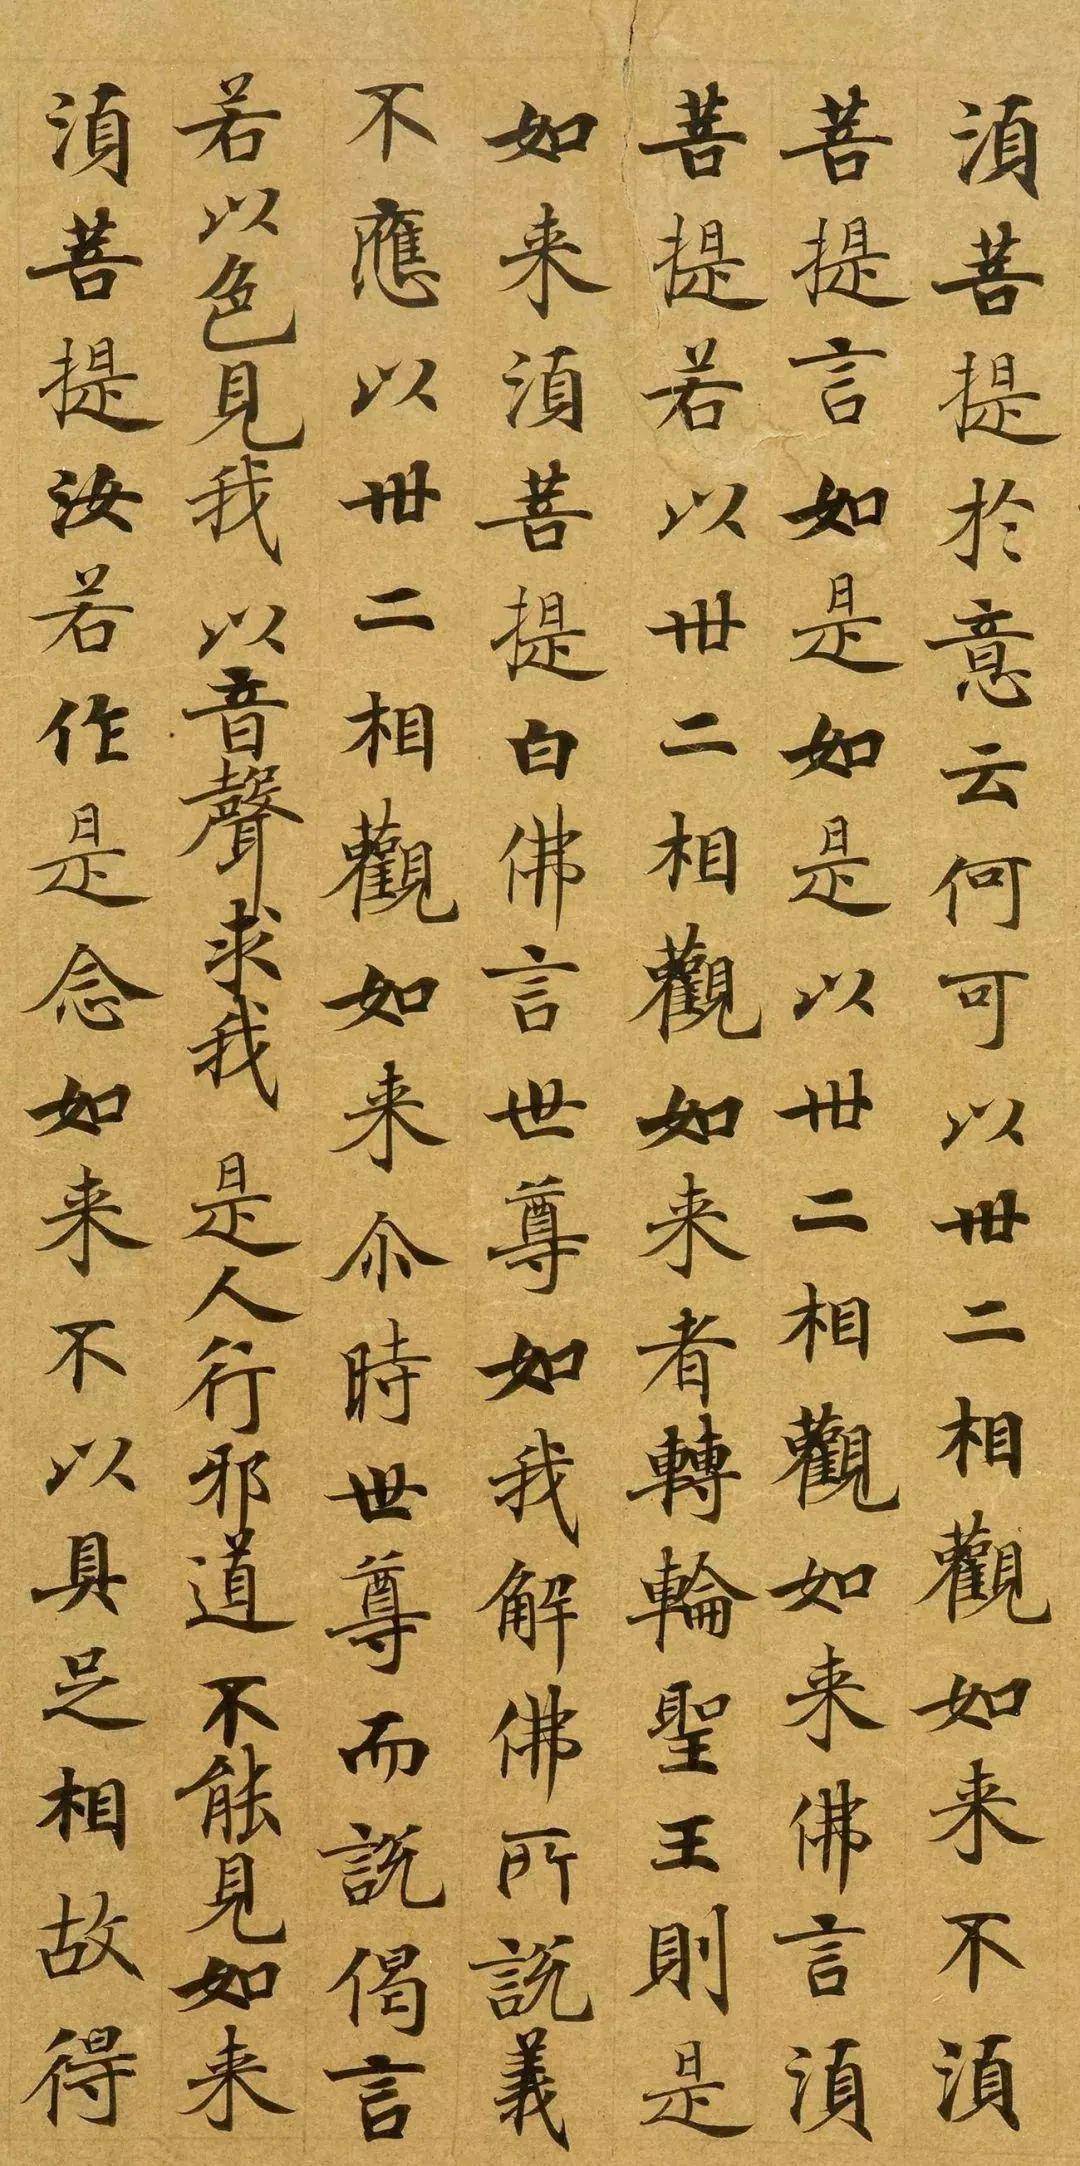 湏菩提於意云何可以卅二相觀如来不湏
菩提言如是如是以卅二相觀如来佛言湏
菩提若以卅二相觀如来者轉輪聖王則是
如来湏菩提白佛言世尊如我解佛所說義
不應以卅二相觀如来尒時世尊而說偈言
若以色見我 以音聲求我 是人行邪道 不能見如来
湏菩提汝若作是念如来不以具足相故得